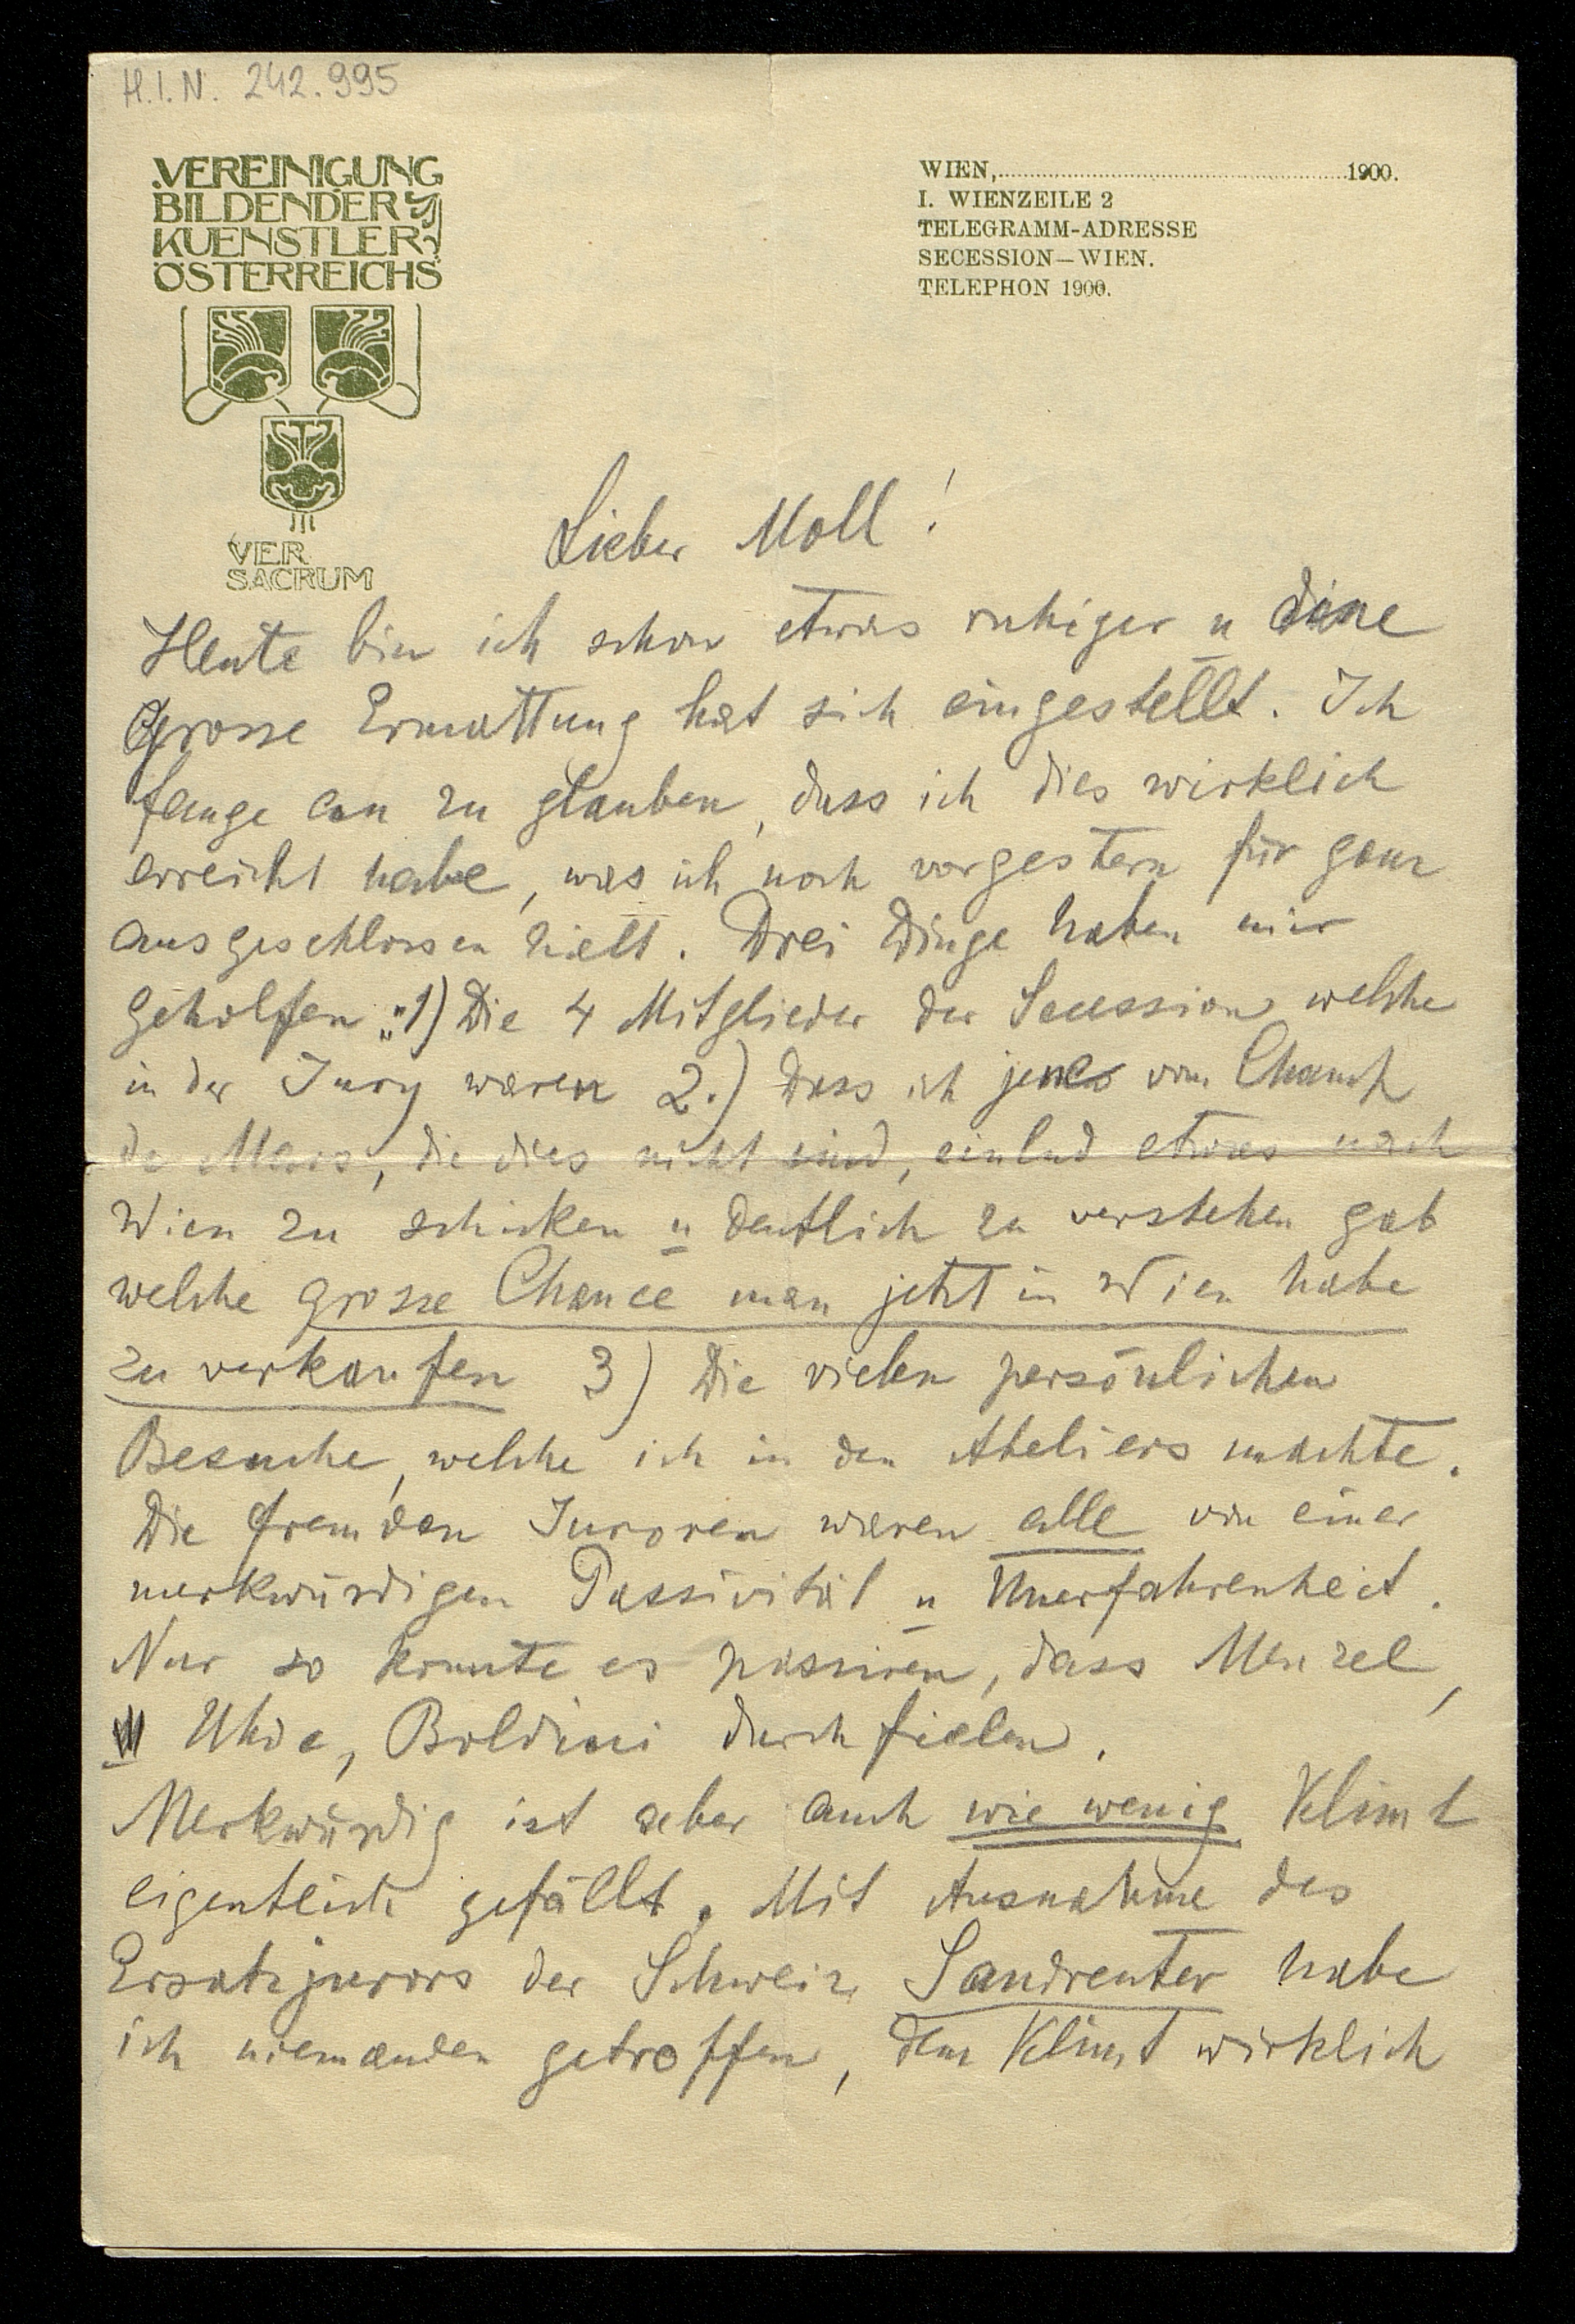 H.I.N. 242.995
VEREINIGUNG
BILDENDER
KUENSTLER
ÖSTERREICHS
VER
SACRUM
WIEN, 1900.
I. WIENZEILE 2
TELEGRAMM-ADRESSE
SECESSION–WIEN.
TELEPHON 1900.
Lieber Moll!
Heute bin ich schon etwas ruhiger u eine
grosse Ermattung hat sich eingestellt. Ich
fange an zu glauben, dass ich dies wirklich
erreicht habe, was ich noch vorgestern für ganz
ausgeschlossen hielt. Drei Dinge haben mir
geholfen: 1) Die 4 Mitglieder der Secession welche
in der Jury waren 2.) Dass ich jenes vom Champ
de Mars, die dies nicht sind, einlud etwas nach
Wien zu schicken u deutlich zu verstehen gab
welche grosse Chance man jetzt in Wien habe
zu verkaufen 3) Die vielen persönlichen
Besuche, welche ich in den Ateliers machte.
Die fremden Juroren waren alle von einer
merkwürdigen Passivität u Unerfahrenheit.
Nur so konnte es passiren, dass Menzel,
Uhde, Boldini durchfielen.
Merkwürdig ist aber auch wie wenig Klimt
eigentlich gefällt. Mit Ausnahme des
Ersatzjurors der Schweiz Sandreuter habe
ich niemanden getroffen, dem Klimt wirklich